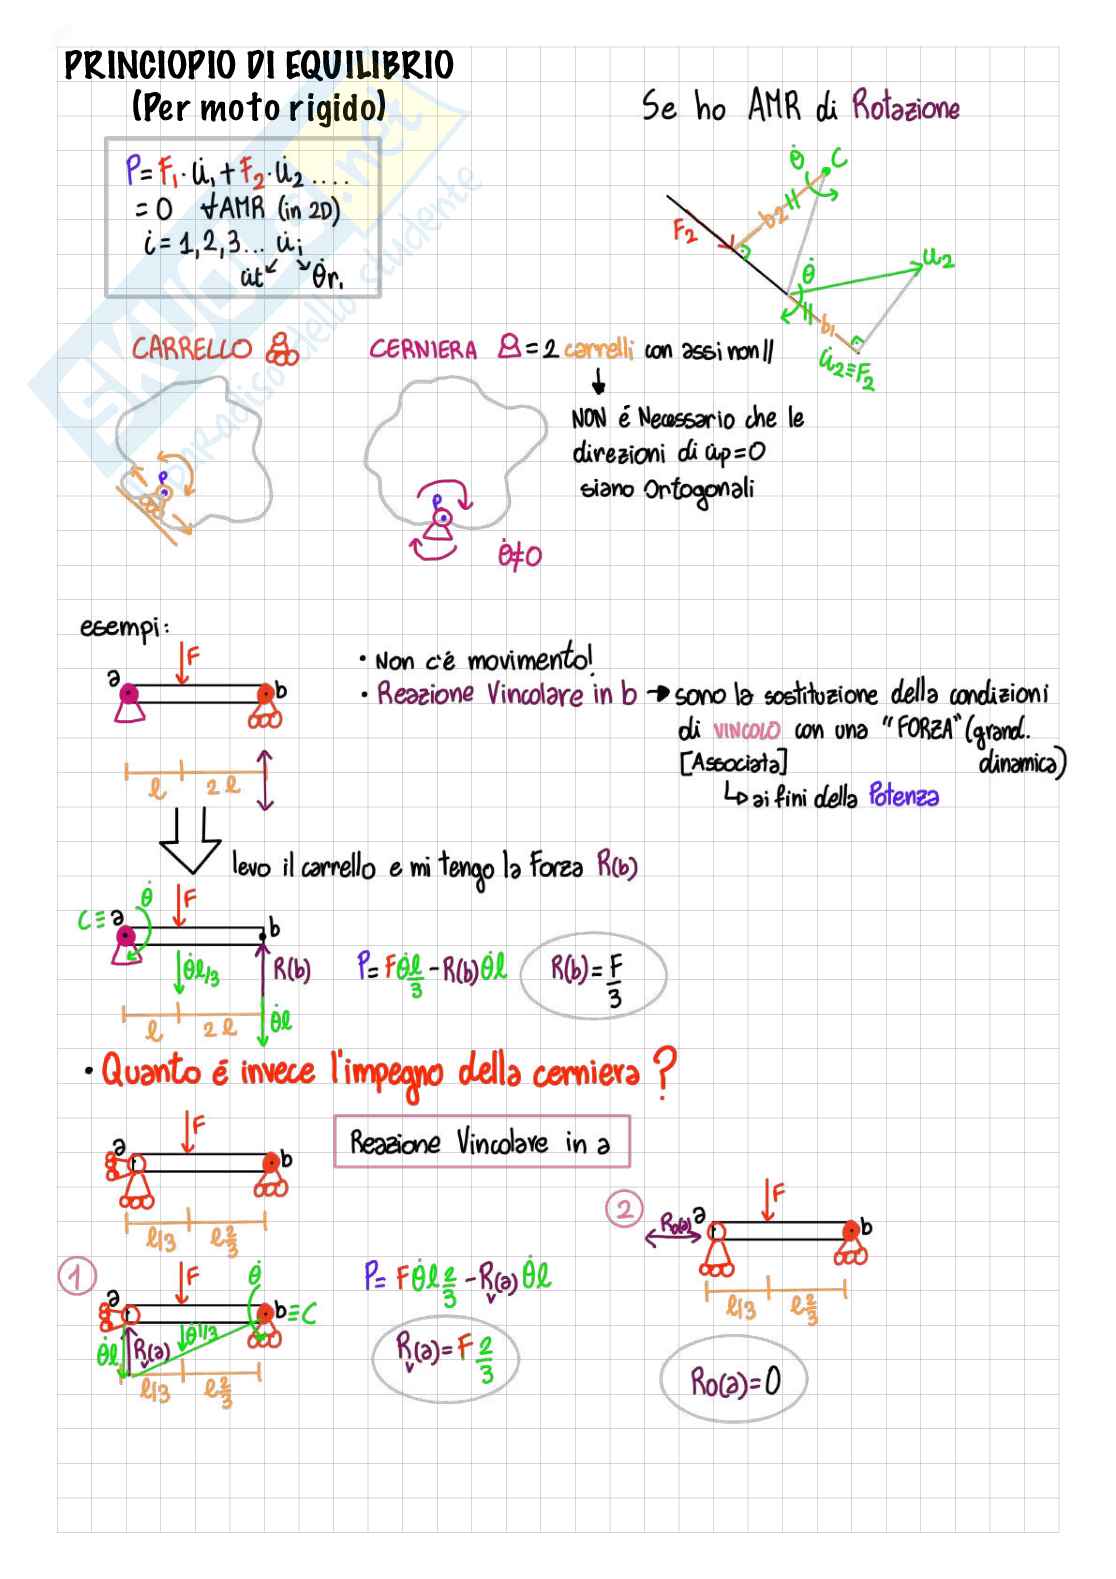 PRINCIOPIO DI EQUILIBRIO
(Per moto rigido)
P = F₁ · u̇₁ + F₂ · u̇₂ ....
= 0 ∀AMR (in 2D)
i = 1,2,3... u̇i
u̇t ↙ ↘ θ̇r.
Se ho AMR di Rotazione
θ̇ C
F₂ b₂
θ̇ u₂
b₁
u̇₂≡F₂
CARRELLO
CERNIERA = 2 carrelli con assi non //
NON é Necessario che le
direzioni di u̇p=0
siano Ortogonali
P
P
θ̇≠0
esempi:
F
a b
l 2l
• Non c'é movimento!
• Reazione Vincolare in b → sono la sostituzione della condizioni
di VINCOLO con una "FORZA" (grand.
[Associata] dinamica)
↳ ai fini della Potenza
levo il carrello e mi tengo la Forza R(b)
θ̇ F
C≡a b
θ̇l/3 R(b)
l 2l θ̇l
P = Fθ̇l/3 - R(b)θ̇l
R(b) = F/3
• Quanto é invece l'impegno della cerniera ?
F
a b
l/3 l2/3
Reazione Vincolare in a
1
F θ̇
a b≡C
θ̇l Rv(a) θ̇l/3
l/3 l2/3
P = Fθ̇l2/3 - Rv(a)θ̇l
Rv(a) = F2/3
2
F
Ro(a) a b
l/3 l2/3
Ro(a)=0
SKUOLA.net
il paradiso dello studente